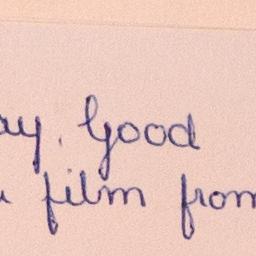 ay. Good
film from